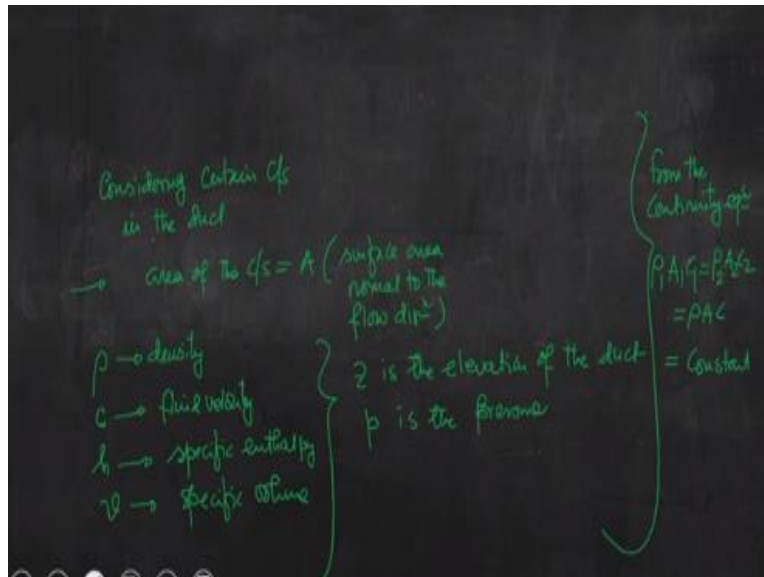 Considering Certain C/s
in the duct
→ area of the C/s = A (surface area
normal to the
flow dirⁿ)
ρ → density
C → fluid velocity
h → specific enthalpy
v → specific volume
z is the elevation of the duct
p is the pressure
from the
Continuity eqⁿ
ρ₁A₁C₁ = ρ₂A₂C₂
= ρAC
= Constant